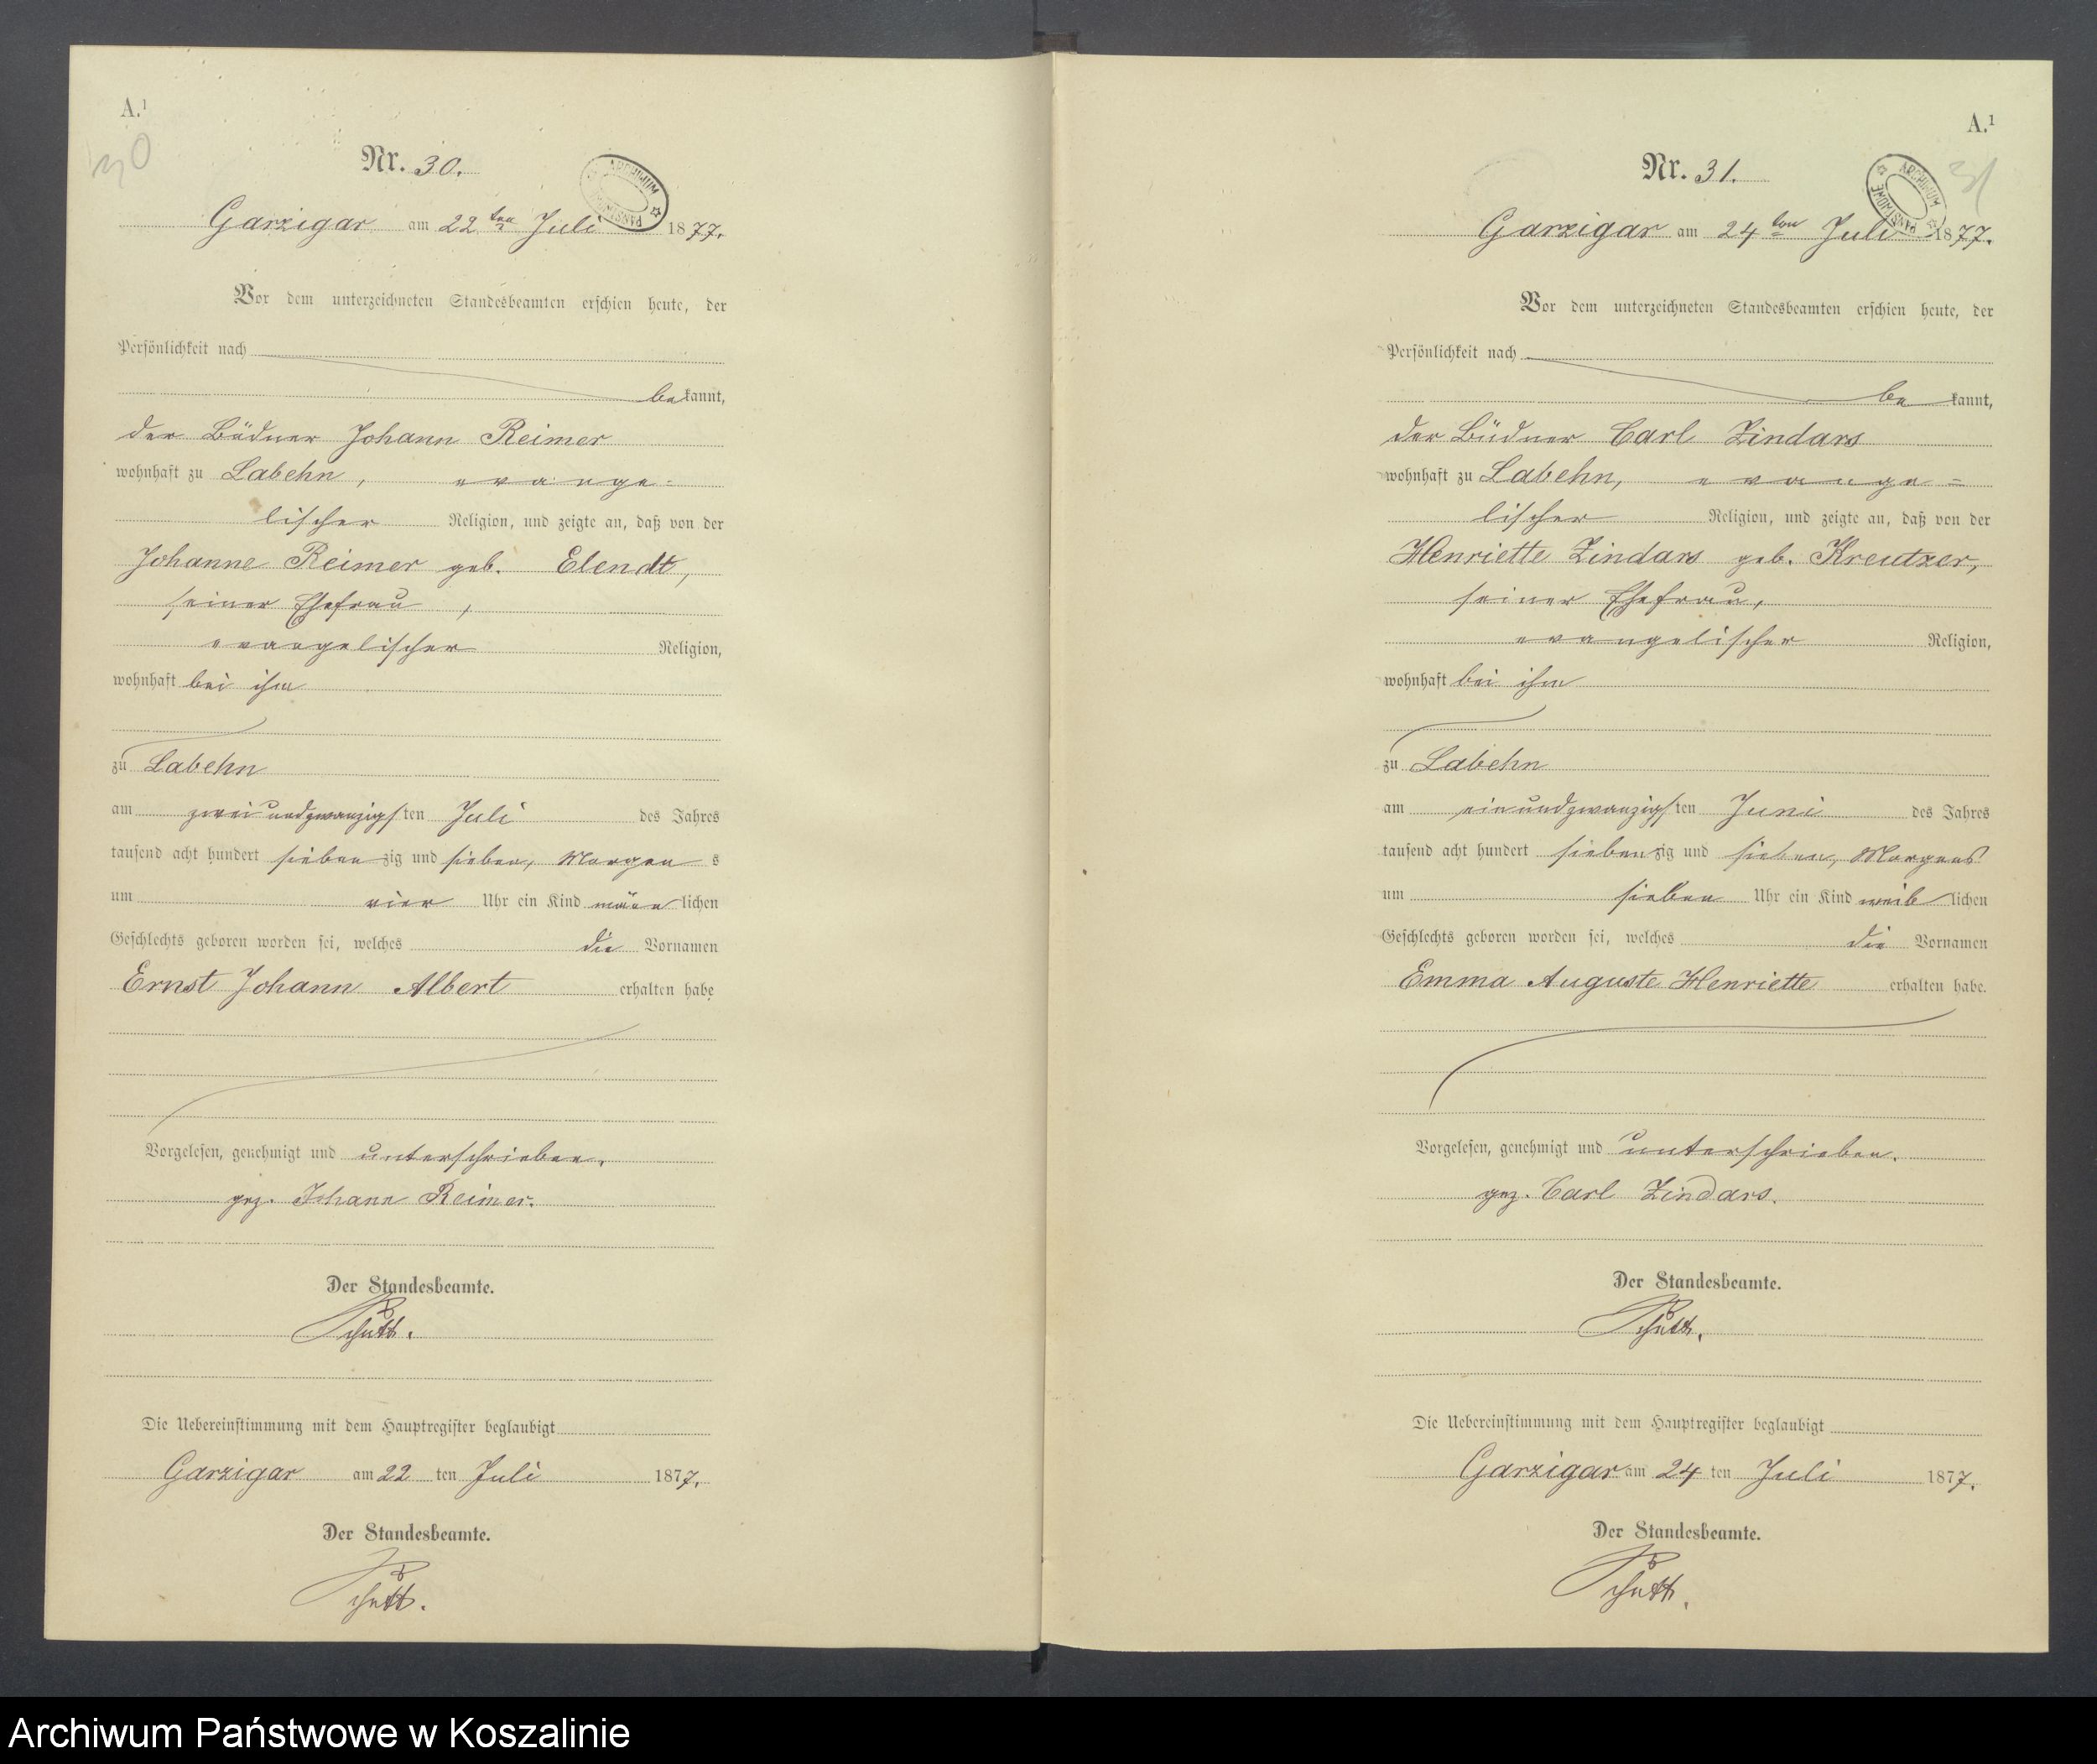 A.¹
30
Nr. 30.
ARCHIWUM PAŃSTWOWE
Garzigar am 22ten Juli 1877.
Vor dem unterzeichneten Standesbeamten erschien heute, der
Persönlichkeit nach
bekannt,
der Büdner Johann Reimer
wohnhaft zu Labehn, evange-
lischer Religion, und zeigte an, daß von der
Johanne Reimer geb. Elendt,
seiner Ehefrau,
evangelischer Religion,
wohnhaft bei ihm
zu Labehn
am zweiundzwanzigsten Juli des Jahres
tausend acht hundert siebenzig und sieben, Morgens
um vier Uhr ein Kind männlichen
Geschlechts geboren worden sei, welches die Vornamen
Ernst Johann Albert erhalten habe
Vorgelesen, genehmigt und unterschrieben.
gez. Johann Reimer.
Der Standesbeamte.
Schütt.
Die Uebereinstimmung mit dem Hauptregister beglaubigt
Garzigar am 22 ten Juli 1877.
Der Standesbeamte.
Schütt.
A.¹
31
Nr. 31.
ARCHIWUM PAŃSTWOWE
Garzigar am 24ten Juli 1877.
Vor dem unterzeichneten Standesbeamten erschien heute, der
Persönlichkeit nach
bekannt,
der Büdner Carl Zindars
wohnhaft zu Labehn, evange=
lischer Religion, und zeigte an, daß von der
Henriette Zindars geb. Kreutzer,
seiner Ehefrau,
evangelischer Religion,
wohnhaft bei ihm
zu Labehn
am einundzwanzigsten Juni des Jahres
tausend acht hundert siebenzig und sieben, Morgens
um sieben Uhr ein Kind weiblichen
Geschlechts geboren worden sei, welches die Vornamen
Emma Auguste Henriette erhalten habe.
Vorgelesen, genehmigt und unterschrieben.
gez. Carl Zindars.
Der Standesbeamte.
Schütt.
Die Uebereinstimmung mit dem Hauptregister beglaubigt
Garzigar am 24 ten Juli 1877.
Der Standesbeamte.
Schütt.
Archiwum Państwowe w Koszalinie